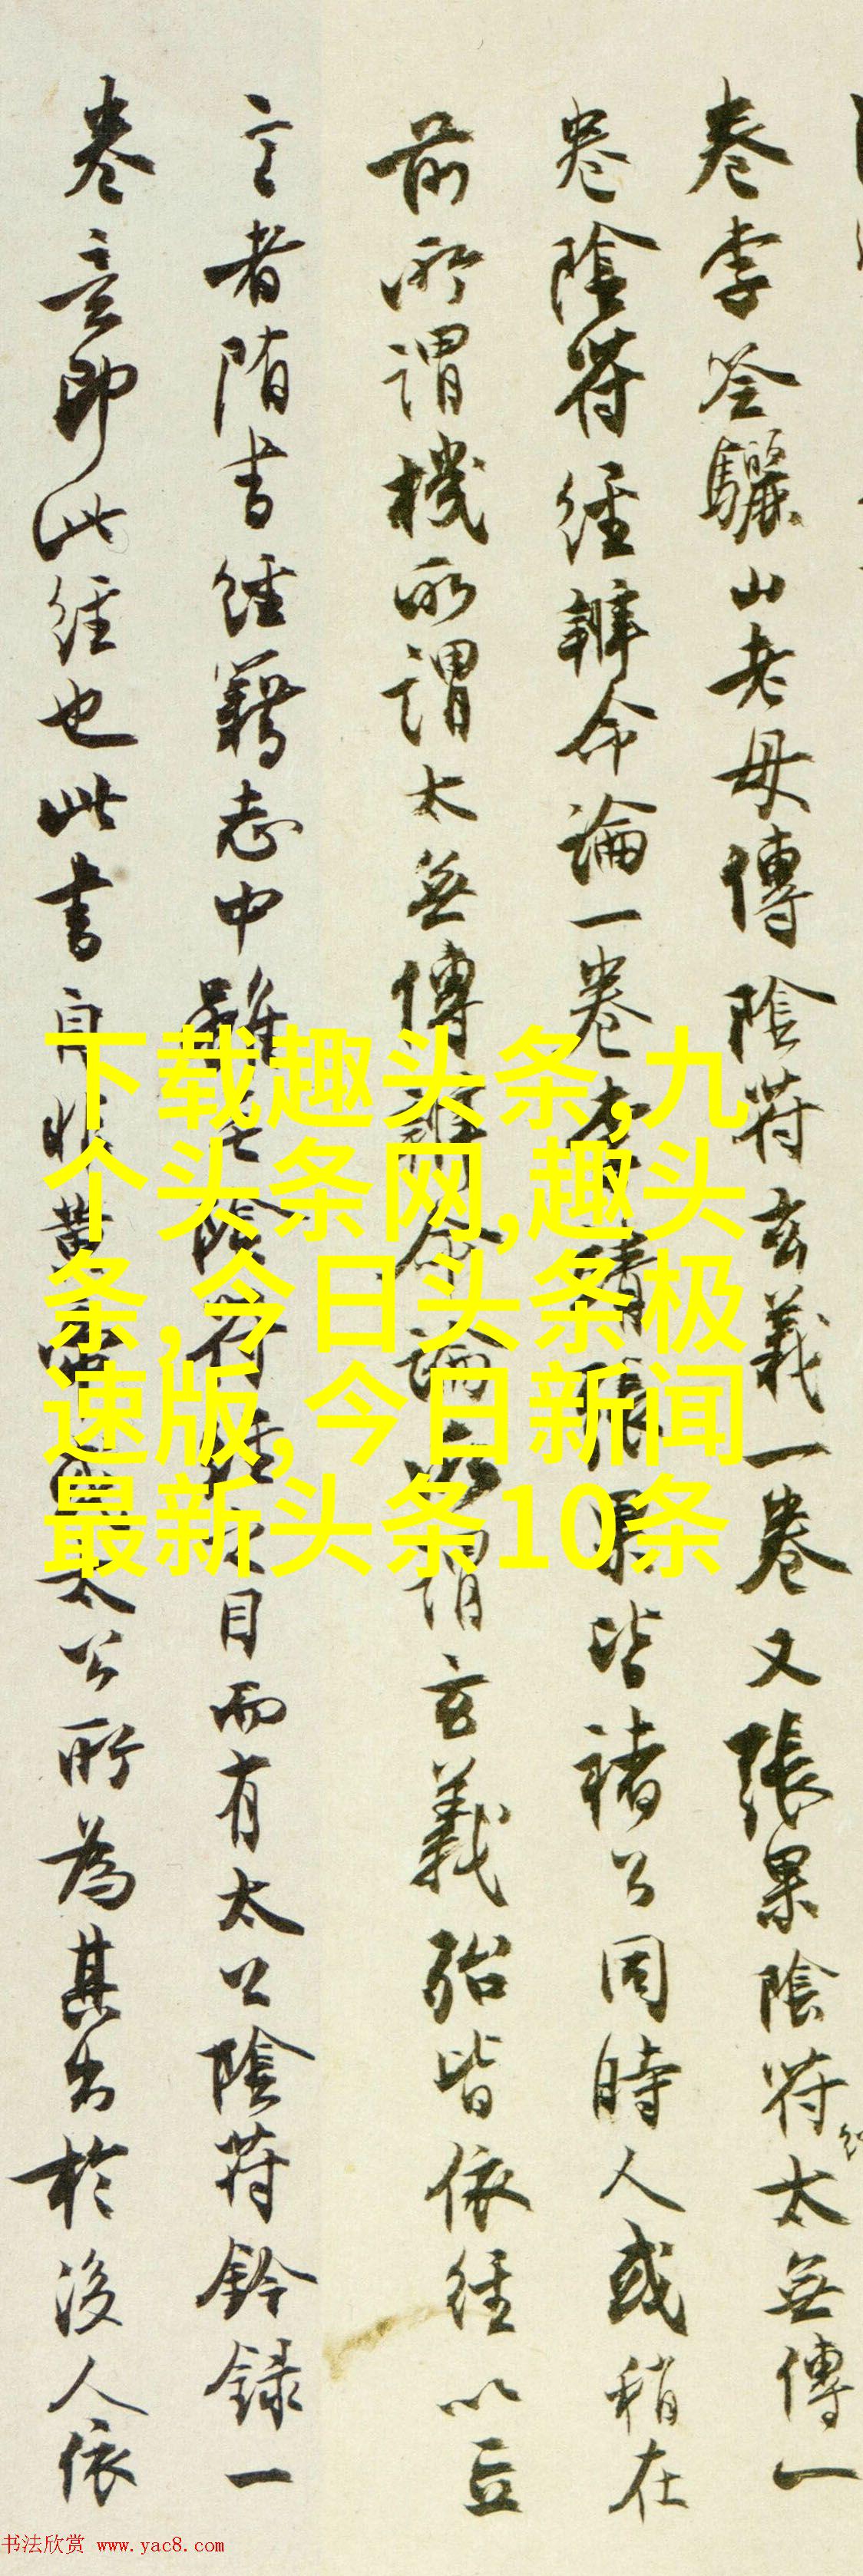 卷李筌驪山老母傳陰符玄義一卷又張果陰符太無傳一
卷陰符經辨命論一卷李靖張果皆褚公同時人或稍在
前所謂機所謂太無傳辨命論所謂玄義殆皆依經以立
言者隋書經籍志中雖無陰符經之目而有太公陰符鈐録一
卷意即此經也此書自非黃帝太公所為其出於後人依
下载趣头条,九
个头条网,趣头
条,今日头条极
速版,今日新闻
最新头条10条
书法欣赏 www.yac8.com